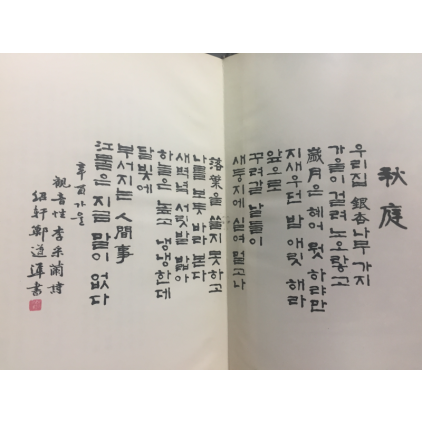 秋庭
우리집 銀杏나무 가지
가을이 걸려 노오랗고
歲月은 헤어 뭣 하랴만
지새우던 밤 애릿 해라
앞으로
꾸려갈 날들이
새둥지에 실여 멀고나
落葉을 쓸지 못하고
나를 보듯 바라 본다
새벽녘 서릿발 밟아
하늘은 높고 냉냉한데
달빛에
부서지는 人間事
江물은 지금 말이 없다
辛酉 가을
觀音性 李采蘭 詩
紹軒 鄭道準 書